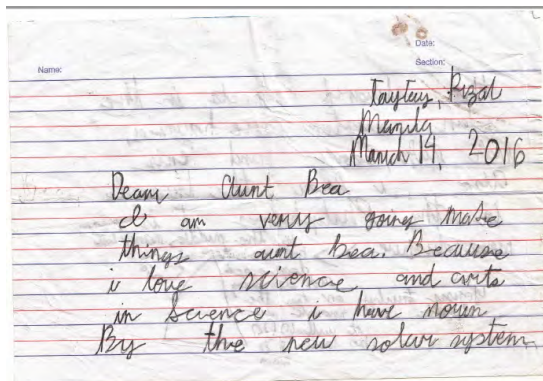 Date:
Name:
Section:
Taytay, Rizal
Manila
March 14, 2016
Dear Aunt Bea
I am very going make
things aunt bea. Because
i love science and arts
in science i have
By the new solar system